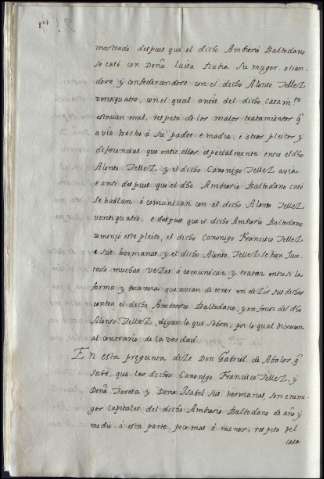 mostrado despues que el dicho Ambario Baltodano
se casó con Doña Luisa su muger alian
dose y confederandose con el dicho Alonso Tellez
veintiquatro, con el qual antes del dicho casamto
estavan mal, respeto de los malos tratamientos q
avia hecho á su padre e madre, i otros pleitos y
diferencias que entre ellos, especialmente entre el dicho
Alonso Tellez y el dicho Canonigo Tellez avia
e ansi despues que el dho Ambario Baltodano casó
se hablan i comunican con el dicho Alonso Tellez
ventiquatro, e despues que el dicho Ambario Baltodano
comenzó este pleito, el dicho Canonigo Francisco Tellez
e sus hermanas y el dicho Alonso Tellez se han jun
tado muchas vezes á comunicar y tratar entre si la
forma y que avian de tener en dezir sus dichos
contra el dicho Ambario Baltodano, y en favor del dho
Alonso Tellez, dejan lo que saben, por lo qual dixeron
al contrario de la verdad
En esta pregunta dize Don Gabriel de q
sabe, que los dichos Canonigo Francisco Tellez, y
Doña y Doña Isabel sus hermanas son enemi
gos capitales del dicho Ambario Baltodano de año y
medio á esta parte, poco mas ó menos, respeto del
caso